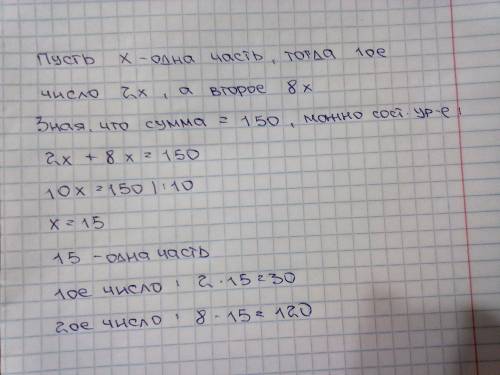 Пусть х - одна часть, тогда 1ое
число 2х, а второе 8х
Зная, что сумма = 150, можно сост. ур-е:
2х + 8х = 150
10х = 150 |:10
х = 15
15 - одна часть
1ое число: 2 · 15 = 30
2ое число: 8 · 15 = 120